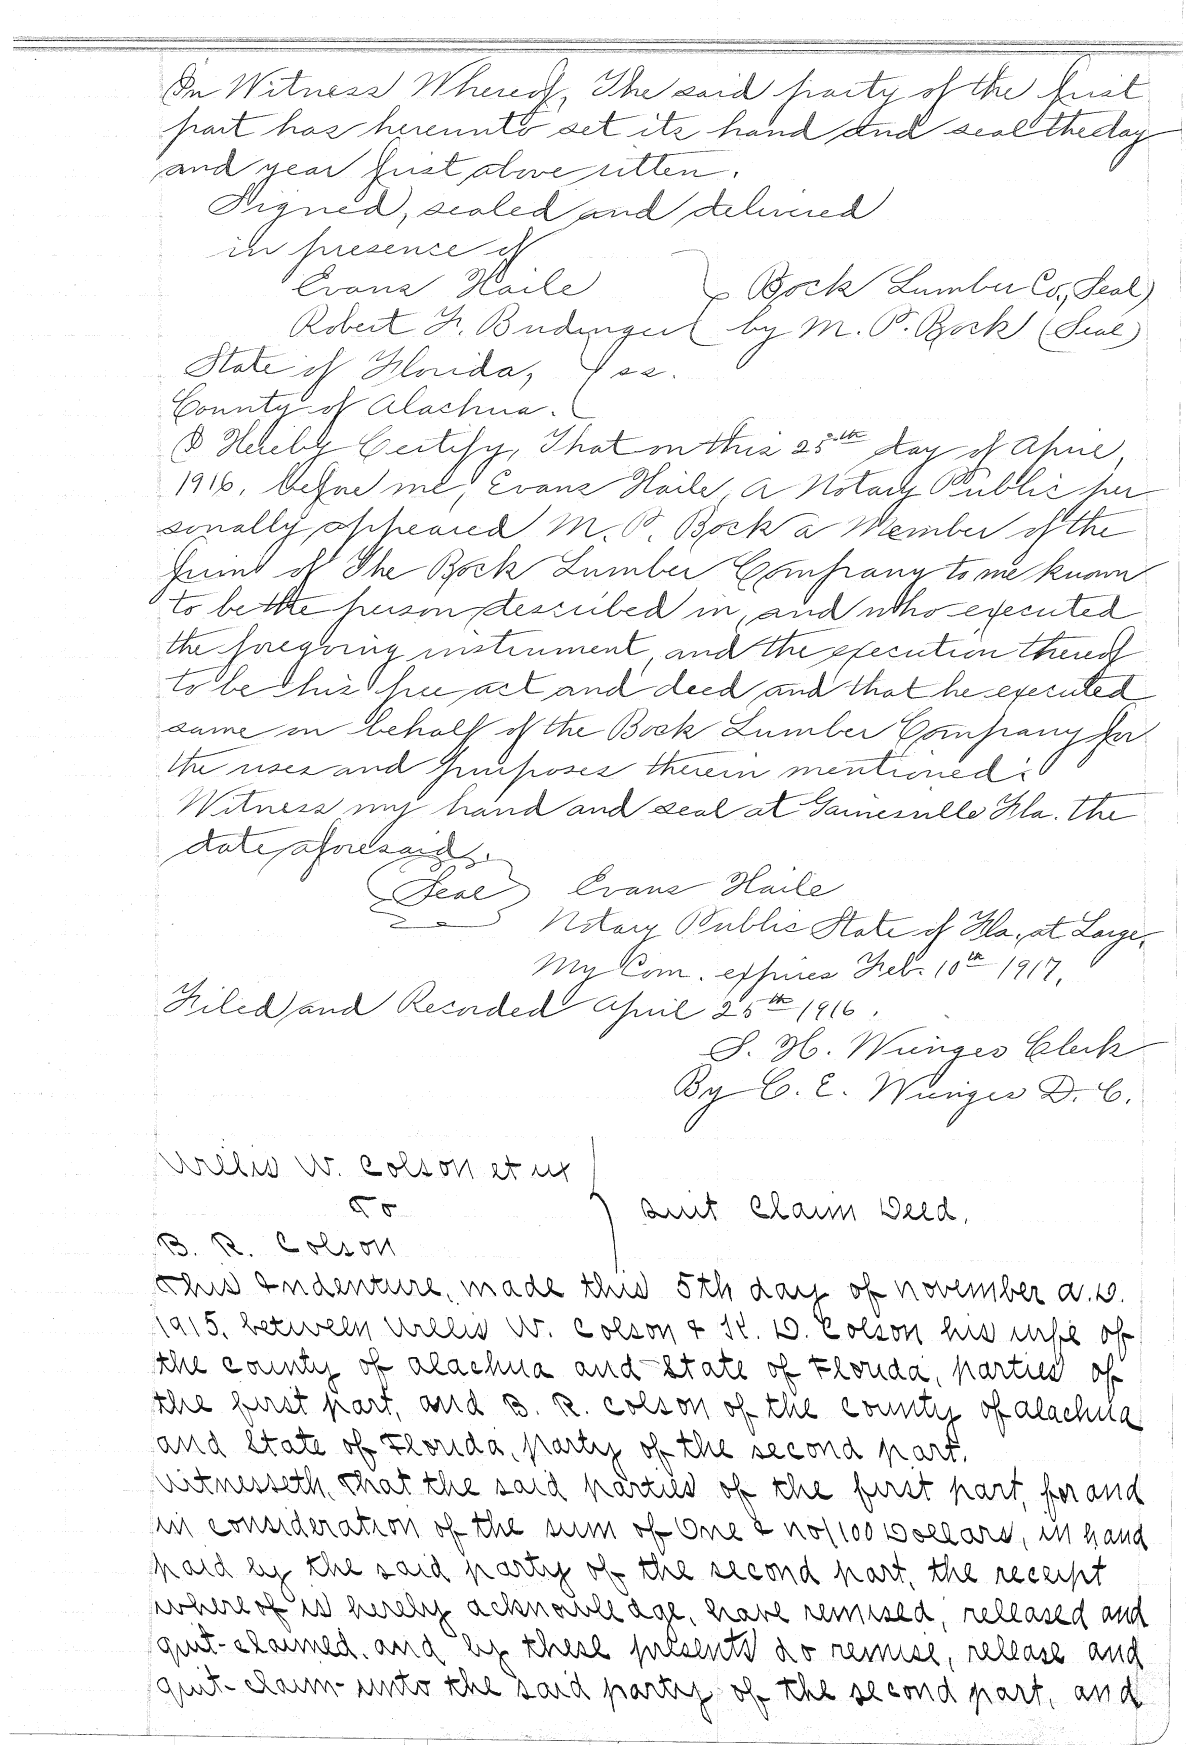 In Witness Whereof, The said party of the first
part has hereunto set its hand and seal the day
and year first above ritten.
Signed, sealed and delivered
in presence of
Evans Haile } Bock Lumber Co., Seal)
Robert F. Budinger ( by M. P. Bock (Seal)
State of Florida, ( ss.
County of Alachua. (
I Hereby Certify, That on this 25th day of April,
1916, before me, Evans Haile, a Notary Public per
sonally appeared M. P. Bock a Member of the
firm of The Bock Lumber Company to me known
to be the person described in, and who executed
the foregoing instrument, and the execution thereof
to be his free act and deed and that he executed
same on behalf of the Bock Lumber Company for
the uses and purposes therein mentioned:
Witness my hand and seal at Gainesville Fla. the
date aforesaid.
(Seal) Evans Haile
Notary Public State of Fla., at Large,
My Com. expires Feb. 10th 1917,
Filed and Recorded April 25th 1916.
S. H. Wienges Clerk
By C. E. Wienges D. C.
Willis W. Colson et ux
To } Quit Claim Deed.
B. R. Colson
This Indenture, made this 5th day of November A.D.
1915, between Willis W. Colson & K. D. Colson his wife of
the county of Alachua and State of Florida, parties of
the first part, and B. R. Colson of the county of Alachua
and State of Florida, party of the second part.
Witnesseth, that the said parties of the first part, for and
in consideration of the sum of One & no/100 Dollars, in hand
paid by the said party of the second part, the receipt
whereof is hereby acknowledge, have remised, released and
quit-claimed, and by these presents do remise, release and
quit-claim unto the said party of the second part, and